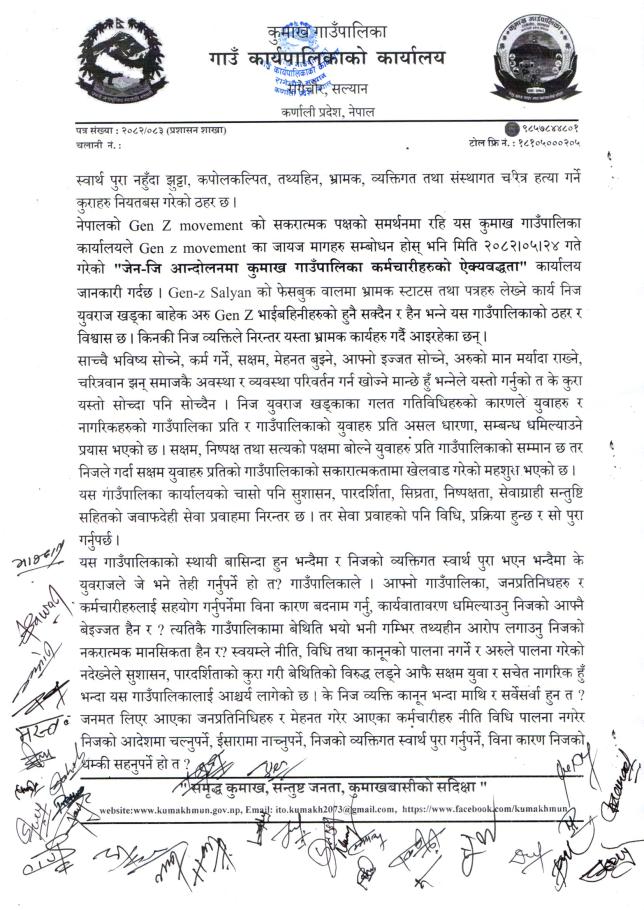 कुमाख गाउँपालिका
गाउँ कार्यपालिकाको कार्यालय
रागेचौर, सल्यान
कर्णाली प्रदेश, नेपाल
पत्र संख्या : २०८२/०८३ (प्रशासन शाखा)
चलानी नं. :
९८५७८४४८०१
टोल फ्रि नं. : १८१०५०००२०५
स्वार्थ पुरा नहुँदा झुट्ठा, कपोलकल्पित, तथ्यहिन, भ्रामक, व्यक्तिगत तथा संस्थागत चरित्र हत्या गर्ने
कुराहरु नियतबस गरेको ठहर छ ।
नेपालको Gen Z movement को सकरात्मक पक्षको समर्थनमा रहि यस कुमाख गाउँपालिका
कार्यालयले Gen z movement का जायज मागहरु सम्बोधन होस् भनि मिति २०८२।०५।२४ गते
गरेको "जेन-जि आन्दोलनमा कुमाख गाउँपालिका कर्मचारीहरुको ऐक्यवद्धता" कार्यालय
जानकारी गर्दछ । Gen-z Salyan को फेसबुक वालमा भ्रामक स्टाटस तथा पत्रहरु लेख्ने कार्य निज
युवराज खड्का बाहेक अरु Gen Z भाईबहिनीहरुको हुनै सक्दैन र हैन भन्ने यस गाउँपालिकाको ठहर र
विश्वास छ । किनकी निज व्यक्तिले निरन्तर यस्ता भ्रामक कार्यहरु गर्दै आइरहेका छन् ।
साच्चै भविष्य सोच्ने, कर्म गर्ने, सक्षम, मेहनत बुझ्ने, आफ्नो इज्जत सोच्ने, अरुको मान मर्यादा राख्ने,
चरित्रवान झन् समाजकै अवस्था र व्यवस्था परिवर्तन गर्न खोज्ने मान्छे हुँ भन्नेले यस्तो गर्नुको त के कुरा
यस्तो सोच्दा पनि सोच्दैन । निज युवराज खड्काका गलत गतिविधिहरुको कारणले युवाहरु र
नागरिकहरुको गाउँपालिका प्रति र गाउँपालिकाको युवाहरु प्रति असल धारणा, सम्बन्ध धमिल्याउने
प्रयास भएको छ । सक्षम, निष्पक्ष तथा सत्यको पक्षमा बोल्ने युवाहरु प्रति गाउँपालिकाको सम्मान छ तर
निजले गर्दा सक्षम युवाहरु प्रतिको गाउँपालिकाको सकारात्मकतामा खेलवाड गरेको महशुश भएको छ ।
यस गाउँपालिका कार्यालयको चासो पनि सुशासन, पारदर्शिता, सिघ्रता, निष्पक्षता, सेवाग्राही सन्तुष्टि
सहितको जवाफदेही सेवा प्रवाहमा निरन्तर छ । तर सेवा प्रवाहको पनि विधि, प्रक्रिया हुन्छ र सो पुरा
गर्नुपर्छ ।
यस गाउँपालिकाको स्थायी बासिन्दा हुन भन्दैमा र निजको व्यक्तिगत स्वार्थ पुरा भएन भन्दैमा के
युवराजले जे भने तेही गर्नुपर्ने हो त? गाउँपालिकाले । आफ्नो गाउँपालिका, जनप्रतिनिधहरु र
कर्मचारीहरुलाई सहयोग गर्नुपर्नेमा विना कारण बदनाम गर्नु, कार्यवातावरण धमिल्याउनु निजको आफ्नै
बेइज्जत हैन र ? त्यतिकै गाउँपालिकामा बेथिति भयो भनी गम्भिर तथ्यहीन आरोप लगाउनु निजको
नकरात्मक मानसिकता हैन र? स्वयम्ले नीति, विधि तथा कानूनको पालना नगर्ने र अरुले पालना गरेको
नदेख्नेले सुशासन, पारदर्शिताको कुरा गरी बेथितिको विरुद्ध लड्ने आफै सक्षम युवा र सचेत नागरिक हुँ
भन्दा यस गाउँपालिकालाई आश्चर्य लागेको छ । के निज व्यक्ति कानून भन्दा माथि र सर्वेसर्वा हुन त ?
जनमत लिएर आएका जनप्रतिनिधिहरु र मेहनत गरेर आएका कर्मचारीहरु नीति विधि पालना नगरेर
निजको आदेशमा चल्नुपर्ने, ईसारामा नाच्नुपर्ने, निजको व्यक्तिगत स्वार्थ पुरा गर्नुपर्ने, विना कारण निजको
धम्की सहनुपर्ने हो त ?
"समृद्ध कुमाख, सन्तुष्ट जनता, कुमाखबासीको सदिक्षा "
website:www.kumakhmun.gov.np, Email: ito.kumakh2073@gmail.com, https://www.facebook.com/kumakhmun